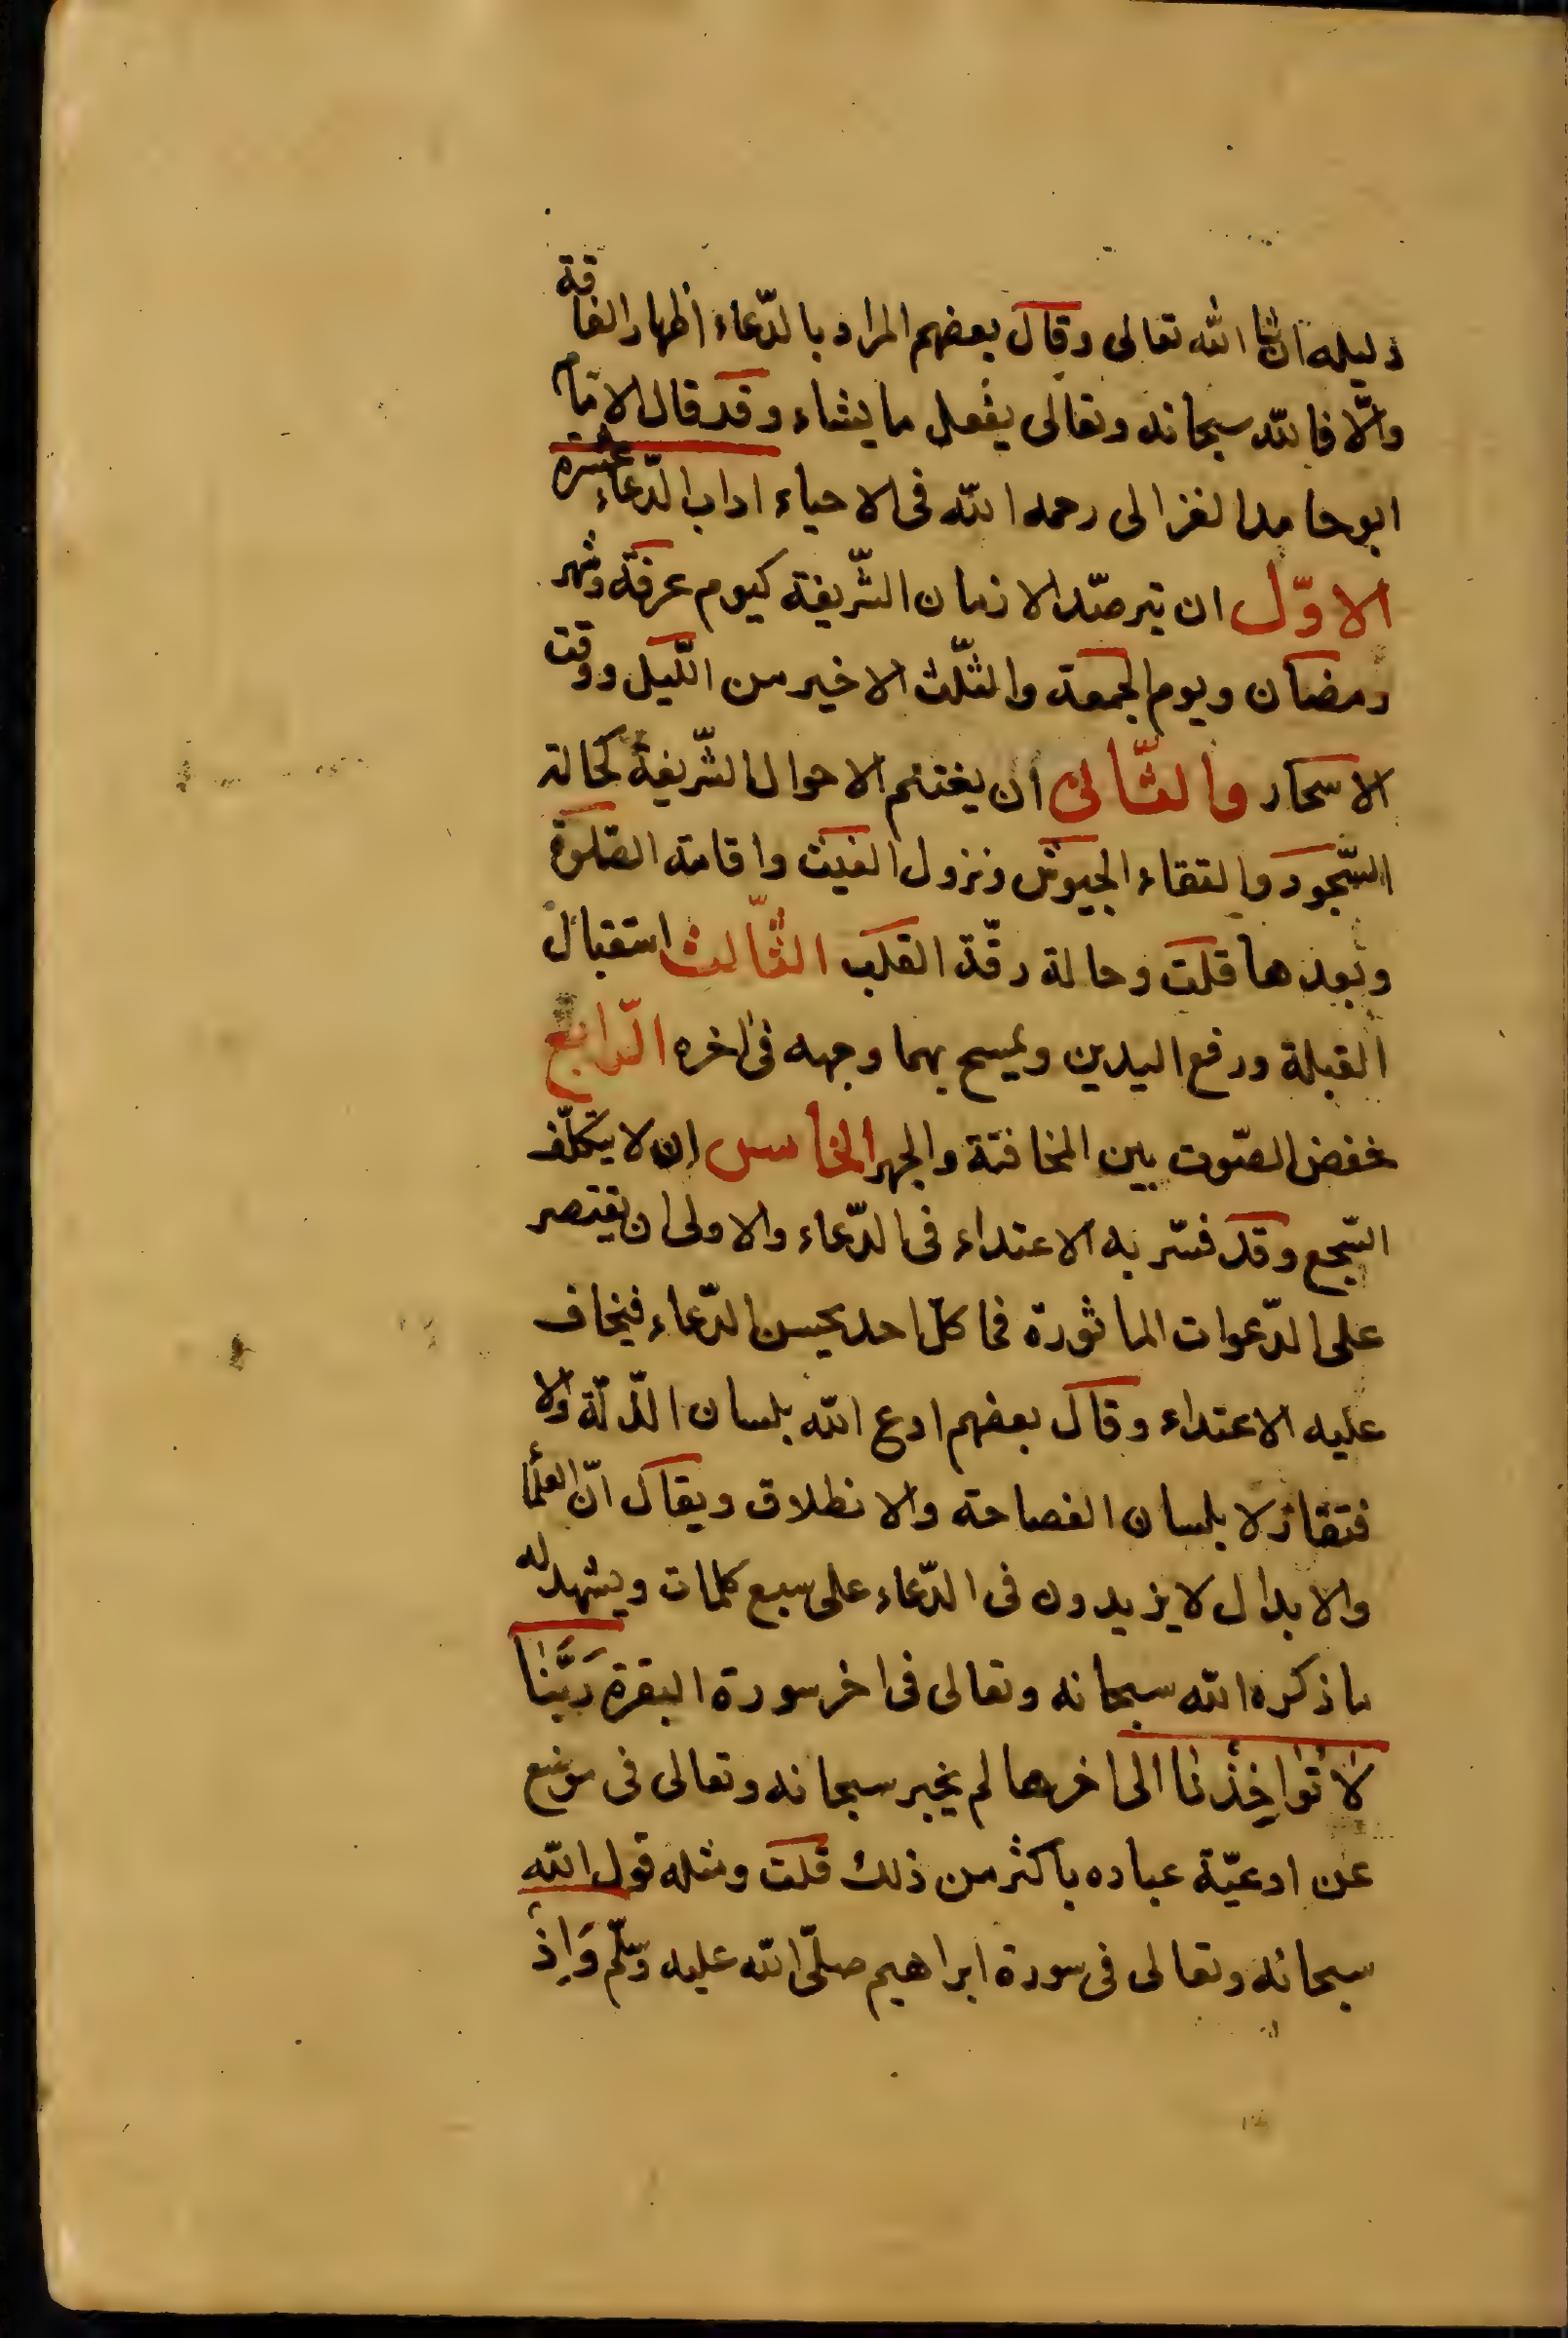 دليله ان شا الله تعالى وقال بعضهم المراد بالدّعاء اظهار الفاقة
والّا فاللّه سبحانه وتعالى يفعل ما يشاء وقد قال الامام
ابو حامد الغزالى رحمه اللّه فى الاحياء اداب الدّعاء عشرة
الاوّل ان يترصّد الازمان الشّريفة كيوم عرفة وشهر
رمضان ويوم الجمعة والثّلث الاخير من اللّيل ووقت
الاسحار والثّانى ان يغتنم الاحوال الشّريفة كحالة
السّجود والتقاء الجيوش ونزول الغيث واقامة الصّلوة
وبعدها قلت وحالة رقّة القلب الثّالث استقبال
القبلة ورفع اليدين ويمسح بهما وجهه فى اخره الرّابع
خفض الصّوت بين المخافتة والجهر الخامس ان لا يتكلّف
السّجع وقد فسّر به الاعتداء فى الدّعاء والاولى ان يقتصر
على الدّعوات الماثورة فما كلّ احد يحسن الدّعاء فيخاف
عليه الاعتداء وقال بعضهم ادع اللّه بلسان الذّلّة والا
فتقار لا بلسان الفصاحة والانطلاق ويقال انّ العلما
والابدال لا يزيدون فى الدّعاء على سبع كلمات ويشهد له
ما ذكره اللّه سبحانه وتعالى فى اخر سورة البقرة رَبَّنَا
لَا تُؤاخِذْنَا الى اخرها لم يخبر سبحانه وتعالى فى موضع
عن ادعيّة عباده باكثر من ذلك قلت ومثله قول اللّه
سبحانه وتعالى فى سورة ابراهيم صلّى اللّه عليه وسلّم وَاِذْ